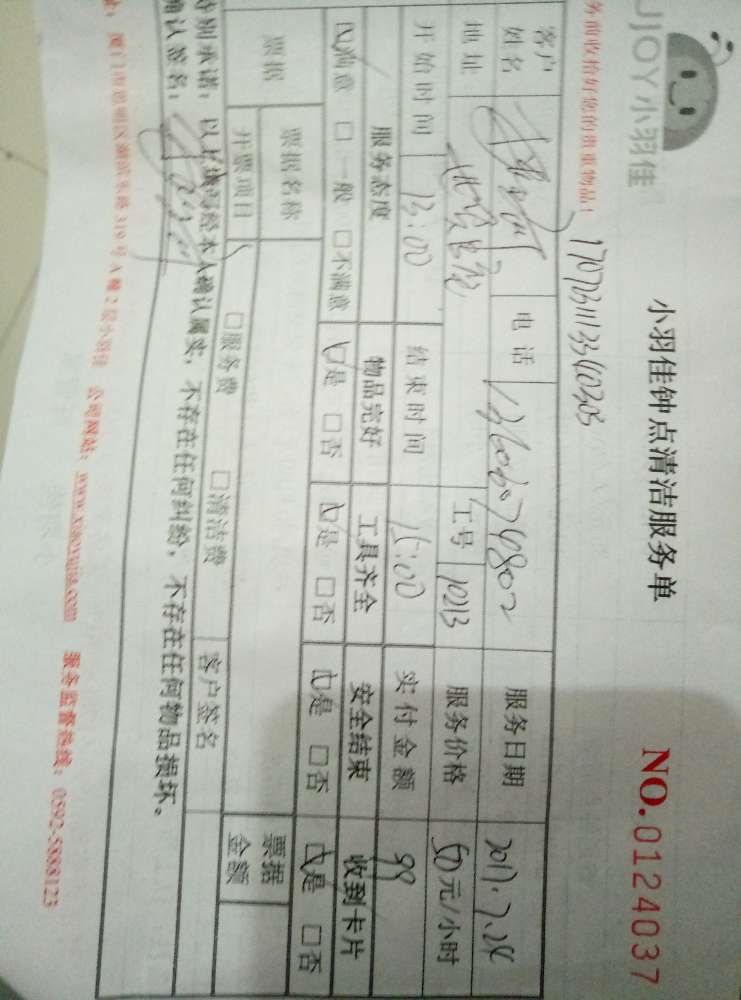 UJOY小羽佳
小羽佳钟点清洁服务单
NO.0124037
务前收拾好您的贵重物品！
客户姓名 电话 服务日期 2017.7.28
地址 工号 10213 服务价格 50元/小时
开始时间 13:00 结束时间 15:00 实付金额 99
服务态度 物品完好 工具齐全 安全结束 收到卡片
☑满意 □一般 □不满意 ☑是 □否 ☑是 □否 ☑是 □否 ☑是 □否
票据 票据名称 票据金额
开票项目 □服务费 □清洁费 客户签名
特别承诺：以上填写经本人确认属实，不存在任何纠纷，不存在任何物品损坏。
确认签名：
址：厦门市思明区湖滨东路319号A幢2层小羽佳 公司网站：www.xiaoyujia.com 服务监督热线：0592-5888123